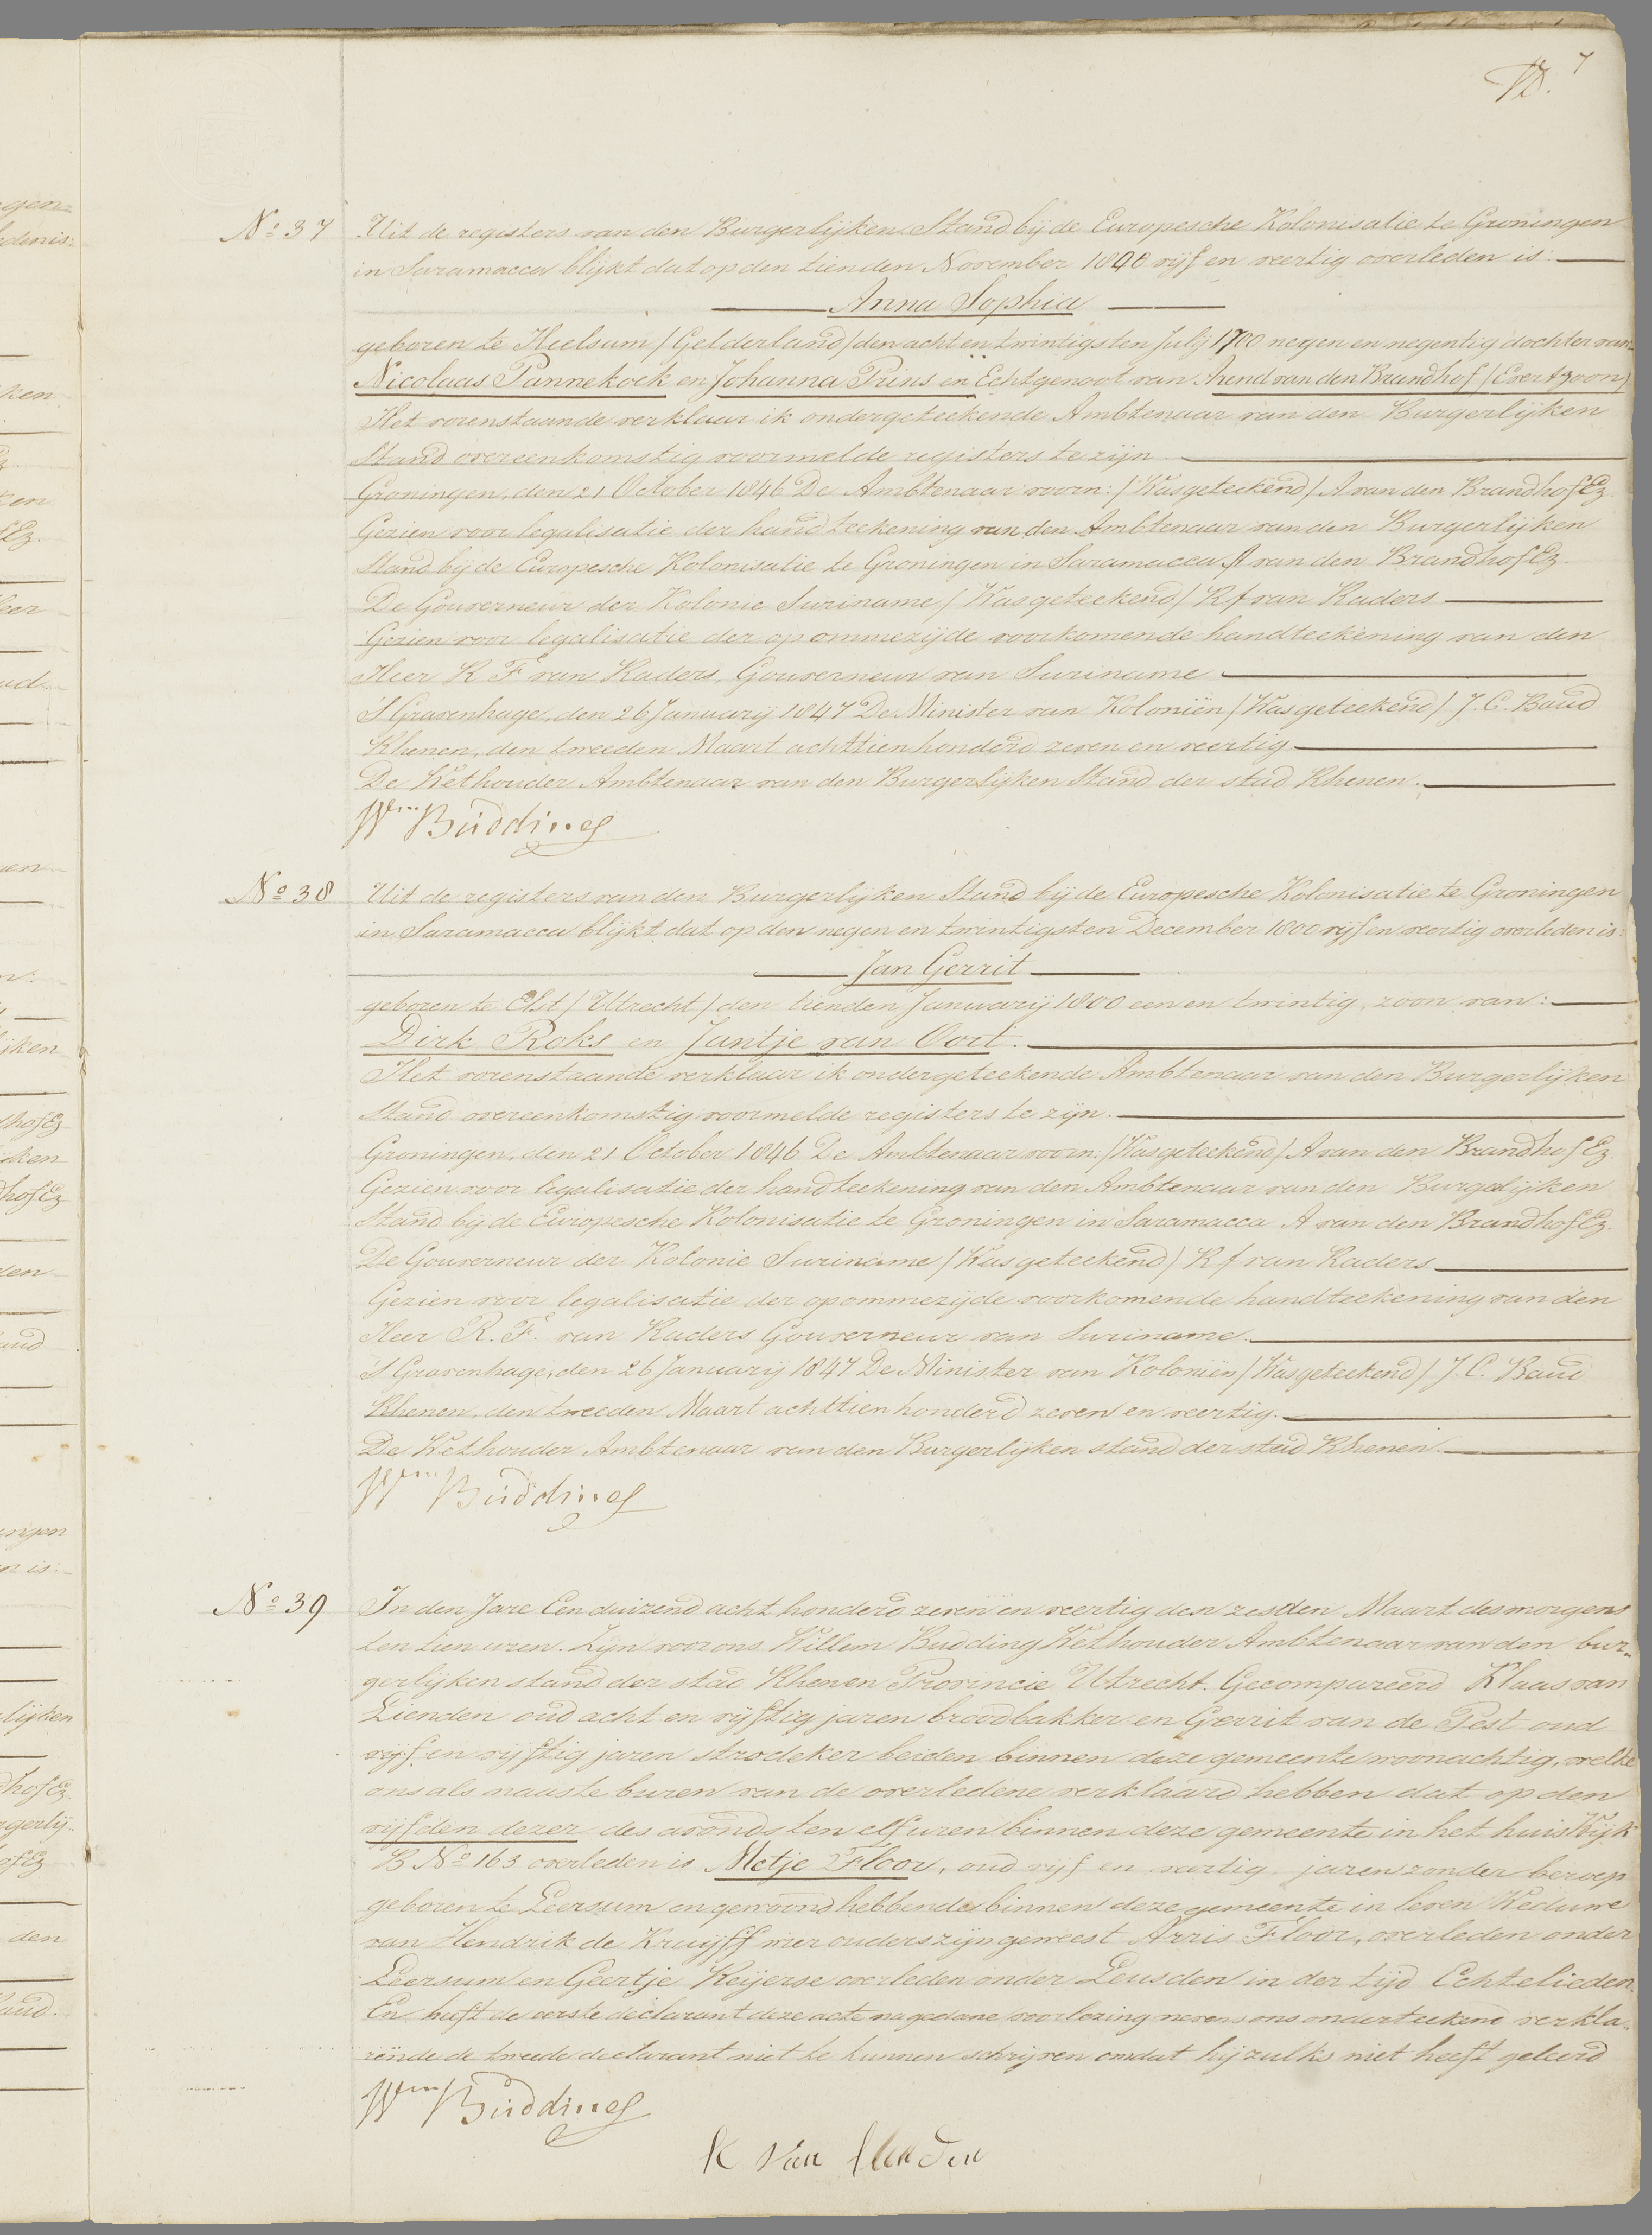 7
No 37 Uit de registers van den Burgerlijken Stand bij de Europesche Kolonisatie te Groningen
in Saramacca blijkt dat op den tienden November 1840 vijf en veertig overleden is:
Anna Sophia
geboren te Heelsum / Gelderland / den acht en twintigsten Julij 1700 negen en negentig dochter van
Nicolaas Pannekoek en Johanna Prins en Echtgenoot van Arend van den Brandhof / Evertzoon)
Het vorenstaande verklaar ik ondergeteekende Ambtenaar van den Burgerlijken
Stand overeenkomstig voormelde registers te zijn
Groningen, den 21 October 1846 De Ambtenaar voorn: / Was geteekend / A van den Brandhof Ez.
Gezien voor legalisatie der handteekening van den Ambtenaar van den Burgerlijken
Stand bij de Europesche Kolonisatie te Groningen in Saramacca A van den Brandhof Ez.
De Gouverneur der Kolonie Suriname / Was geteekend / R f van Raders
Gezien voor legalisatie der op ommezijde voorkomende handteekening van den
Heer R F van Raders, Gouverneur van Suriname
'S Gravenhage, den 26 Januarij 1847 De Minister van Koloniën / Was geteekend / J. C. Baud
Rhenen, den tweeden Maart achttienhonderd zeven en veertig
De Wethouder Ambtenaar van den Burgerlijken Stand der stad Rhenen.
Wm Budding
No 38 Uit de registers van den Burgerlijken Stand bij de Europesche Kolonisatie te Groningen
in Saramacca blijkt dat op den negen en twintigsten December 1800 vijf en veertig overleden is:
Jan Gerrit
geboren te Elst / Utrecht / den tienden Januarij 1800 een en twintig, zoon van:
Dirk Roks en Jantje van Oort.
Het vorenstaande verklaar ik ondergeteekende Ambtenaar van den Burgerlijken
Stand overeenkomstig voormelde registers te zijn.
Groningen, den 21 October 1846 De Ambtenaar voorn: / Was geteekend / A van den Brandhof Ez.
Gezien voor legalisatie der handteekening van den Ambtenaar van den Burgerlijken
Stand bij de Europesche Kolonisatie te Groningen in Saramacca A van den Brandhof Ez.
De Gouverneur der Kolonie Suriname / Was geteekend / R f van Raders
Gezien voor legalisatie der op ommezijde voorkomende handteekening van den
Heer R. F. van Raders Gouverneur van Suriname.
'S Gravenhage, den 26 Januarij 1847 De Minister van Koloniën / Was geteekend / J. C. Baud
Rhenen, den tweeden Maart achttienhonderd zeven en veertig.
De Wethouder Ambtenaar van den Burgerlijken stand der stad Rhenen
Wm Budding
No 39 In den Jare Een duizend acht honderd zeven en veertig den zesden Maart des morgens
ten tien uren. Zijn voor ons Willem Budding Wethouder Ambtenaar van den bur-
gerlijken stand der stad Rhenen Provincie Utrecht. Gecompareerd Klaas van
Lienden oud acht en vijftig jaren broodbakker en Gerrit van de Pest oud
vijf en vijftig jaren strodeker beiden binnen deze gemeente woonachtig, welke
ons als naaste buren van de overledene verklaard hebben dat op den
vijfden dezer des avonds ten elf uren binnen deze gemeente in het huis Wijk
B No 163 overleden is Metje Floor, oud vijf en veertig jaren zonder beroep
geboren te Leersum en gewoond hebbende binnen deze gemeente in leven Weduwe
van Hendrik de Kruijff wier ouders zijn geweest Arris Floor, overleden onder
Leersum en Geertje Keijerse overleden onder Leusden in der tijd Echtelieden.
En heeft de eerste declarant deze acte na gedane voorlezing nevens ons onderteekend verkla-
rende de tweede declarant niet te kunnen schrijven omdat hij zulks niet heeft geleerd
Wm Budding
K van Lienden